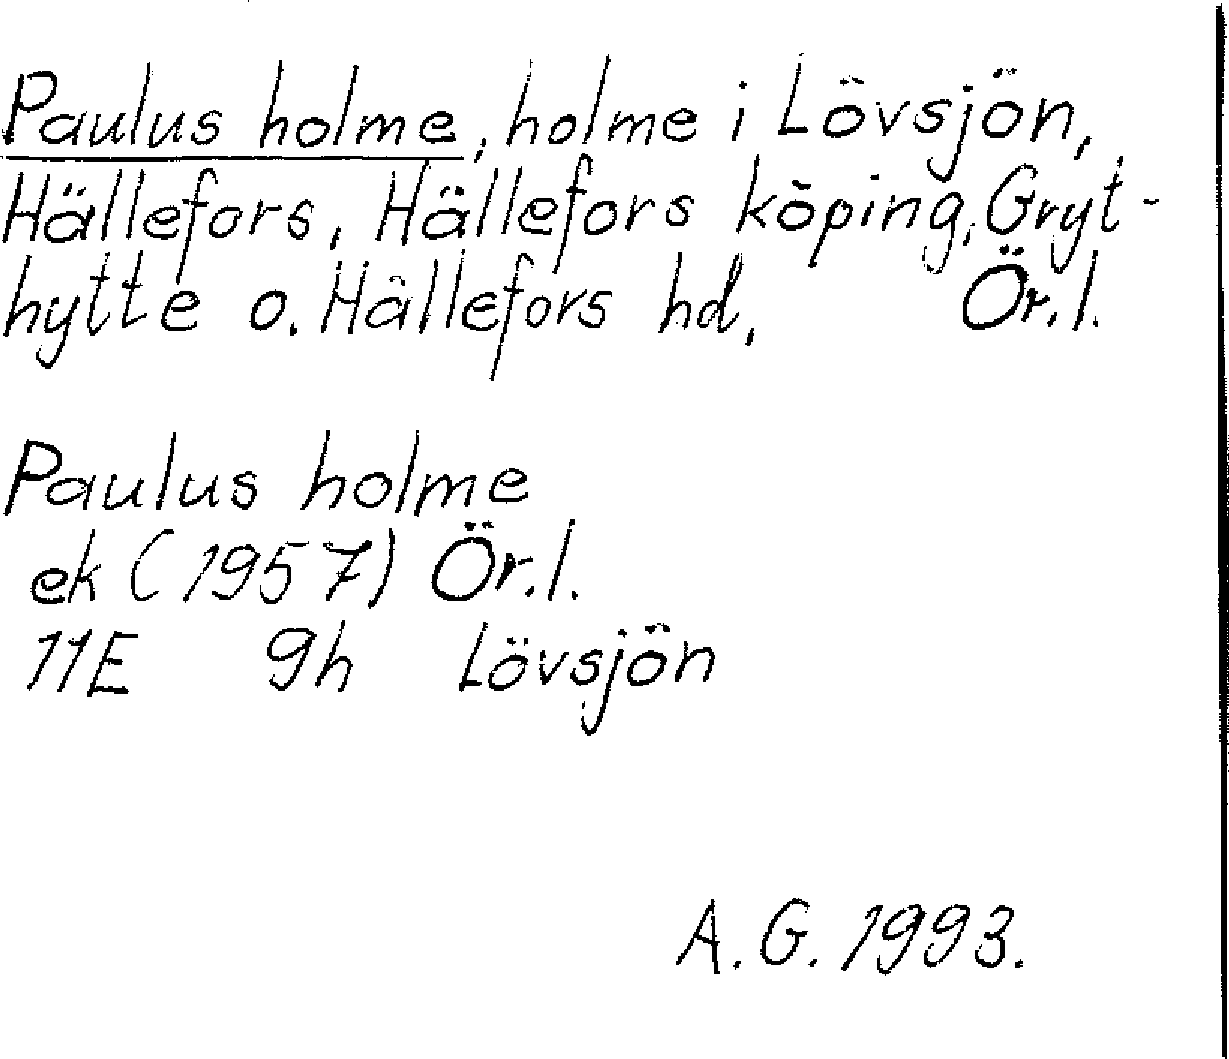 Paulus holme, holme i Lövsjön,
Hällefors, Hällefors köping, Gryt-
hytte o. Hällefors hd, Ör.l.
Paulus holme
ek (1957) Ör.l.
11E 9h Lövsjön
A.G. 1993.